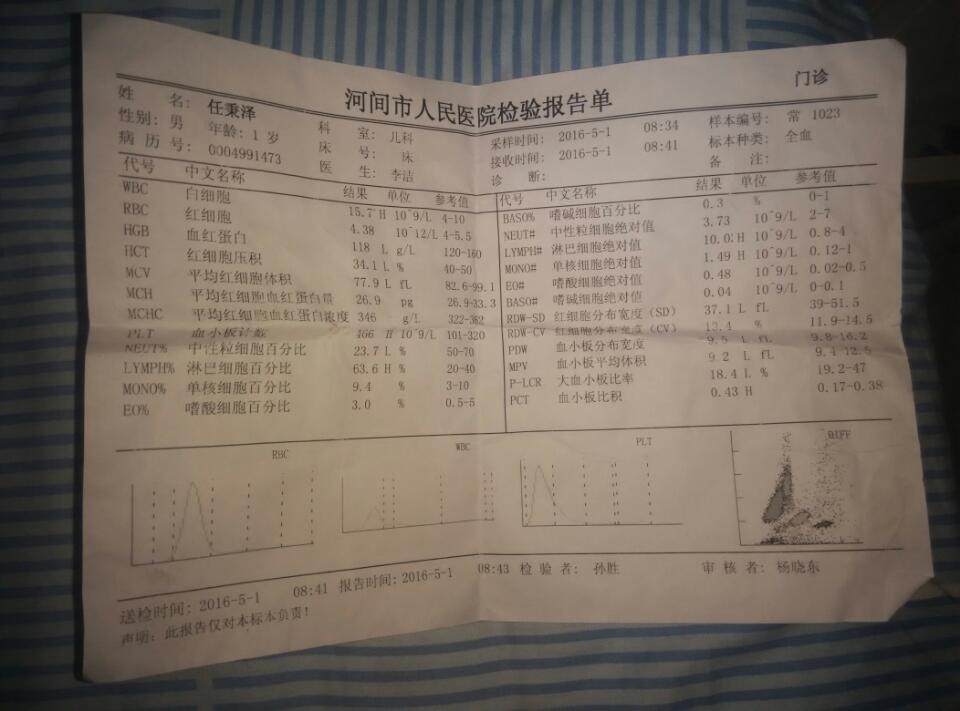 河间市人民医院检验报告单
门诊
姓 名: 任秉泽 科 室: 儿科 采样时间: 2016-5-1 08:34 样本编号: 常 1023
性别: 男 年龄: 1 岁 床 号: 床 接收时间: 2016-5-1 08:41 标本种类: 全血
病 历 号: 0004991473 医 生: 李洁 诊 断: 备 注:
代号 中文名称 结果 单位 参考值
WBC 白细胞 15.7 H 10^9/L 4-10
RBC 红细胞 4.38 10^12/L 4-5.5
HGB 血红蛋白 118 L g/L 120-160
HCT 红细胞压积 34.1 L % 40-50
MCV 平均红细胞体积 77.9 L fL 82.6-99.1
MCH 平均红细胞血红蛋白量 26.9 pg 26.9-33.3
MCHC 平均红细胞血红蛋白浓度 346 g/L 322-362
PLT 血小板计数 466 H 10^9/L 101-320
NEUT% 中性粒细胞百分比 23.7 L % 50-70
LYMPH% 淋巴细胞百分比 63.6 H % 20-40
MONO% 单核细胞百分比 9.4 % 3-10
EO% 嗜酸细胞百分比 3.0 % 0.5-5
代号 中文名称 结果 单位 参考值
BASO% 嗜碱细胞百分比 0.3 % 0-1
NEUT# 中性粒细胞绝对值 3.73 10^9/L 2-7
LYMPH# 淋巴细胞绝对值 10.02 H 10^9/L 0.8-4
MONO# 单核细胞绝对值 1.49 H 10^9/L 0.12-1
EO# 嗜酸细胞绝对值 0.48 10^9/L 0.02-0.5
BASO# 嗜碱细胞绝对值 0.04 10^9/L 0-0.1
RDW-SD 红细胞分布宽度(SD) 37.1 L fL 39-51.5
RDW-CV 红细胞分布宽度(CV) % 11.9-14.5
PDW 血小板分布宽度 9.5 L fL 9.8-16.2
MPV 血小板平均体积 9.2 L fL 9.4-12.5
P-LCR 大血小板比率 18.4 L % 19.2-47
PCT 血小板比积 0.43 H 0.17-0.38
RBC WBC PLT DIFF
送检时间: 2016-5-1 08:41 报告时间: 2016-5-1 08:43 检 验 者: 孙胜 审 核 者: 杨晓东
声明: 此报告仅对本标本负责!